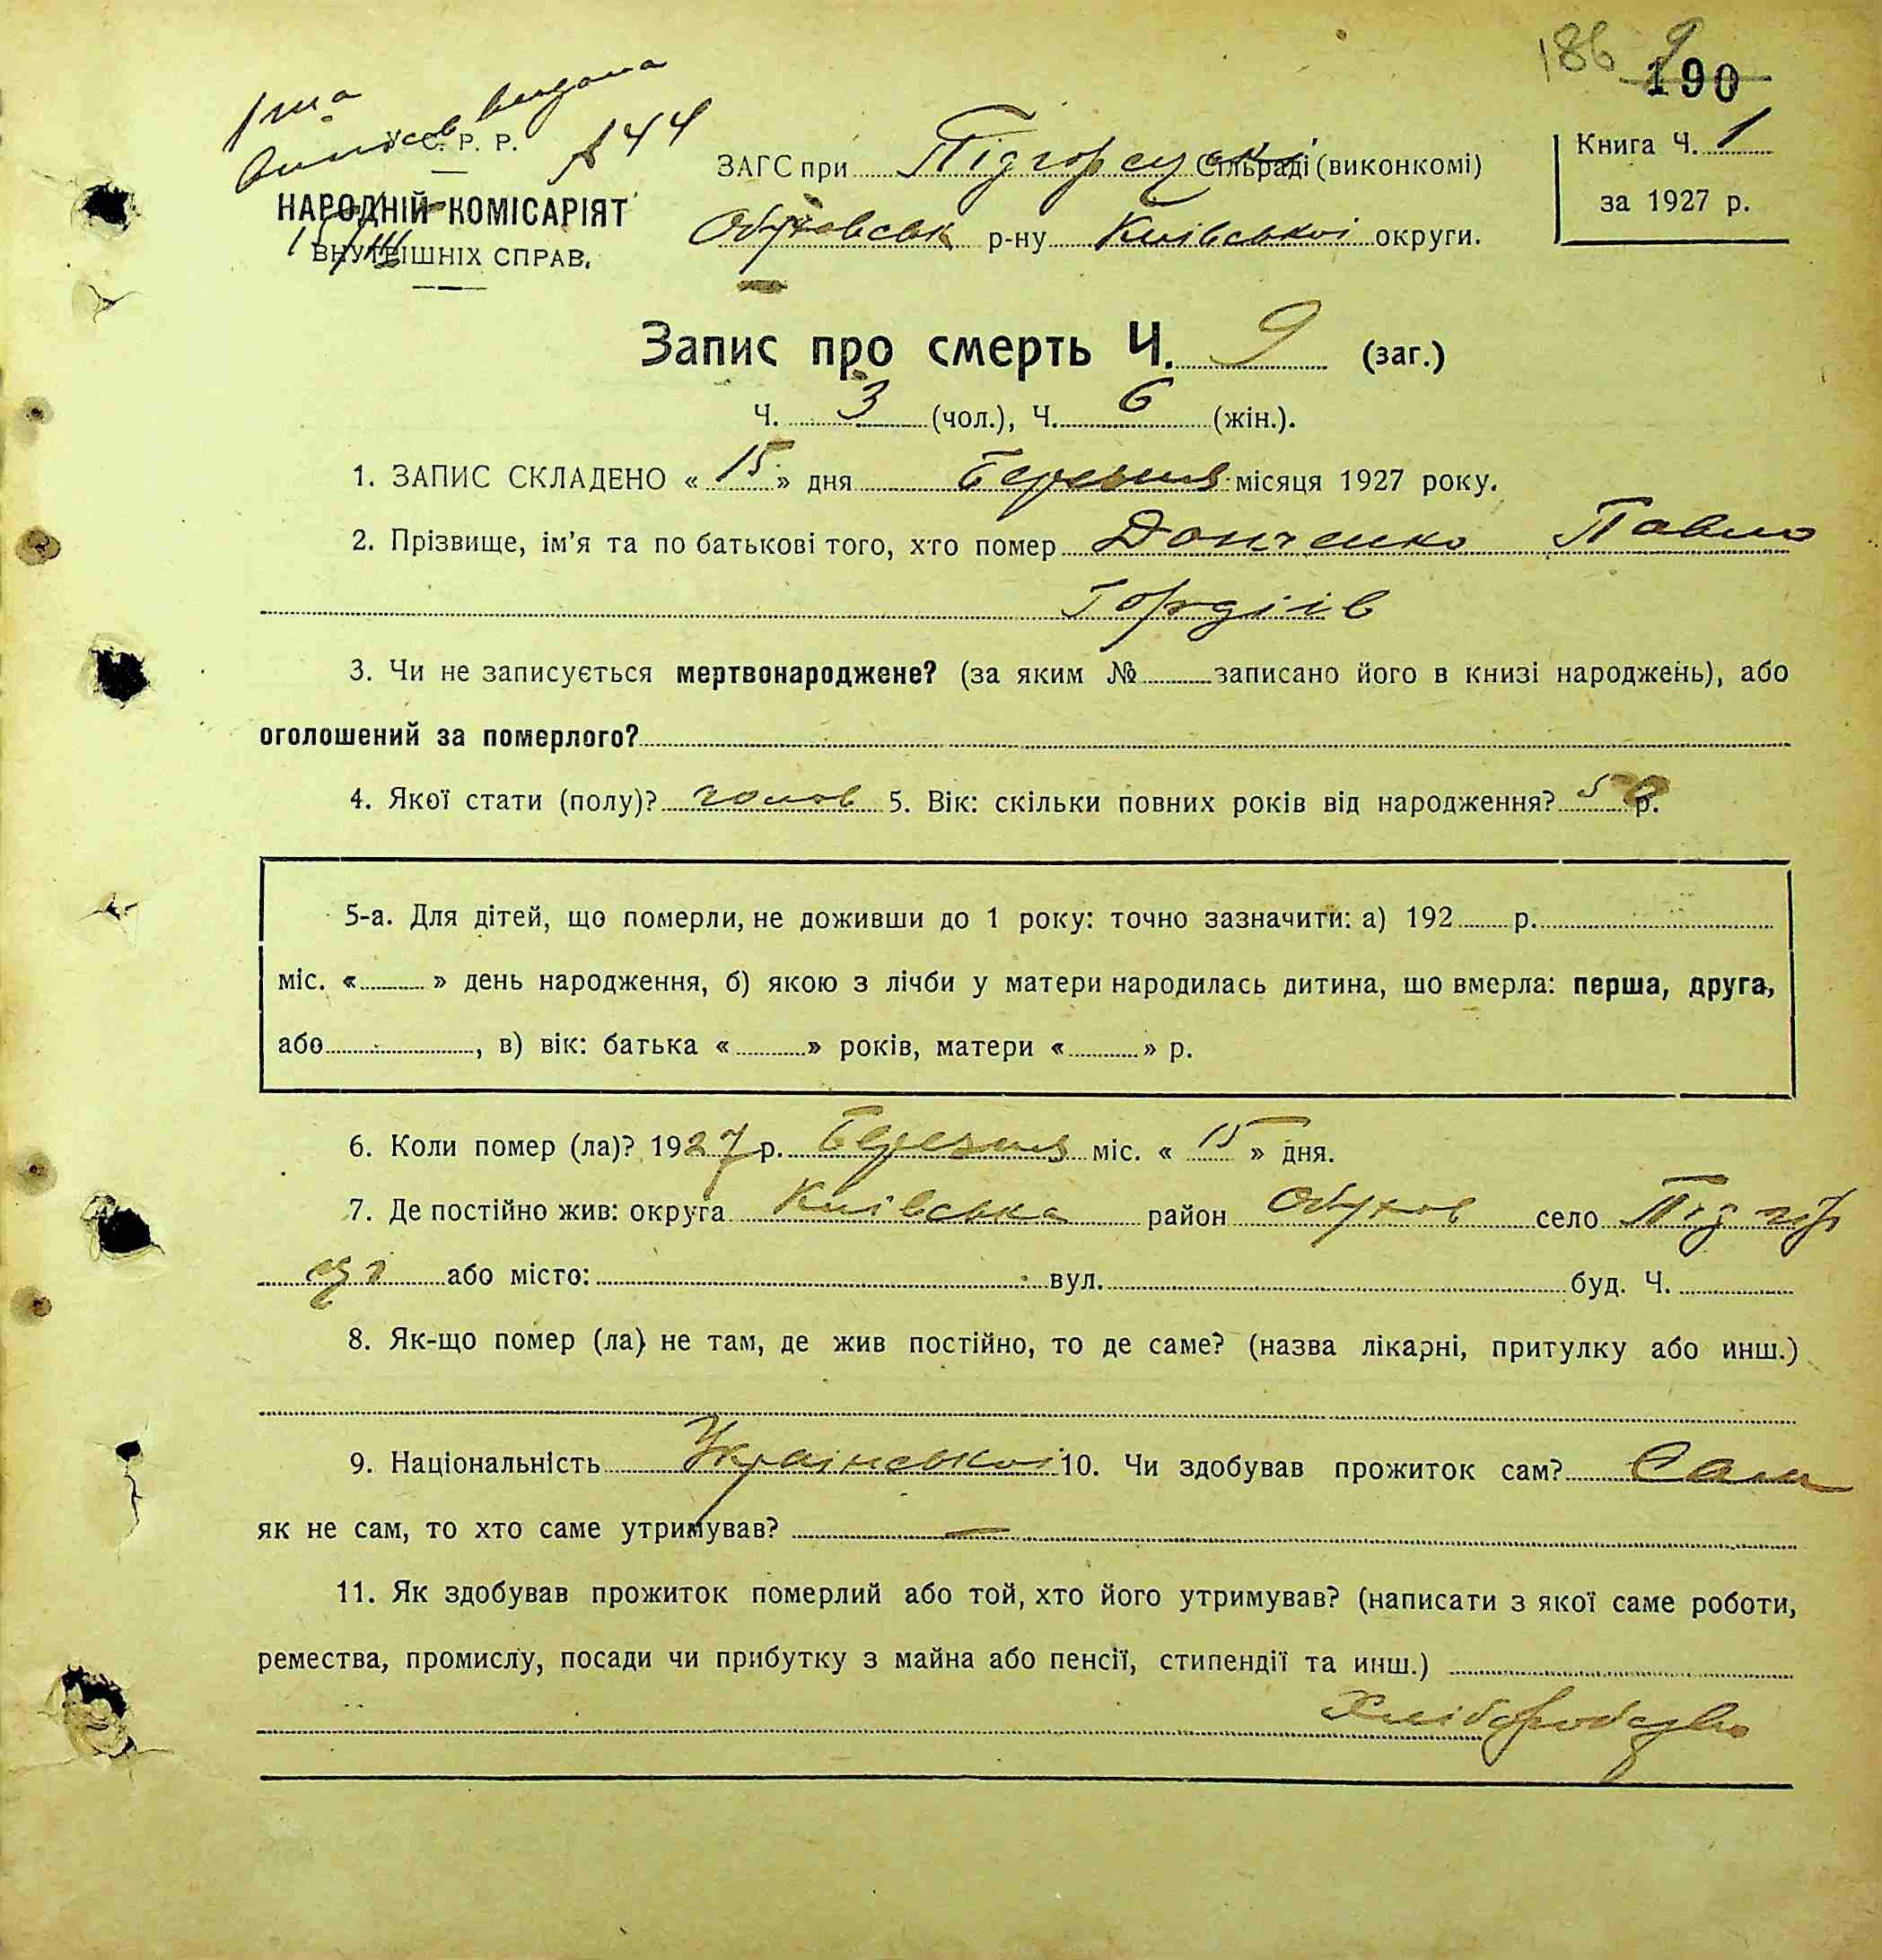 186 9
190
виписъ видана
У.С.Р.Р.
№ 44
НАРОДНІЙ КОМІСАРІЯТ
ВНУТРІШНІХ СПРАВ.
15/III
ЗАГС при Підгорецькі Сільраді (виконкомі)
Обухівськ р-ну Київської округи.
Книга Ч. 1
за 1927 р.
Запис про смерть Ч. 9 (заг.)
Ч. 3 (чол.), Ч. 6 (жін.).
1. ЗАПИС СКЛАДЕНО « 15 » дня Березня місяця 1927 року.
2. Прізвище, ім'я та по батькові того, хто помер Донченко Павло
Гордіів
3. Чи не записується мертвонароджене? (за яким № записано його в книзі народжень), або
оголошений за померлого?
4. Якої стати (полу)? чолов 5. Вік: скільки повних років від народження? 50 р.
5-а. Для дітей, що померли, не доживши до 1 року: точно зазначити: а) 192 р.
міс. « » день народження, б) якою з лічби у матери народилась дитина, що вмерла: перша, друга,
або , в) вік: батька « » років, матери « » р.
6. Коли помер (ла)? 1927 р. Березня міс. « 15 » дня.
7. Де постійно жив: округа Київська район Обухов село Підгір
ці або місто: вул. буд. Ч.
8. Як-що помер (ла) не там, де жив постійно, то де саме? (назва лікарні, притулку або инш.)
9. Національність Українськоі 10. Чи здобував прожиток сам? Сам
як не сам, то хто саме утримував? —
11. Як здобував прожиток померлий або той, хто його утримував? (написати з якої саме роботи,
ремества, промислу, посади чи прибутку з майна або пенсії, стипендії та инш.)
Хліборобство